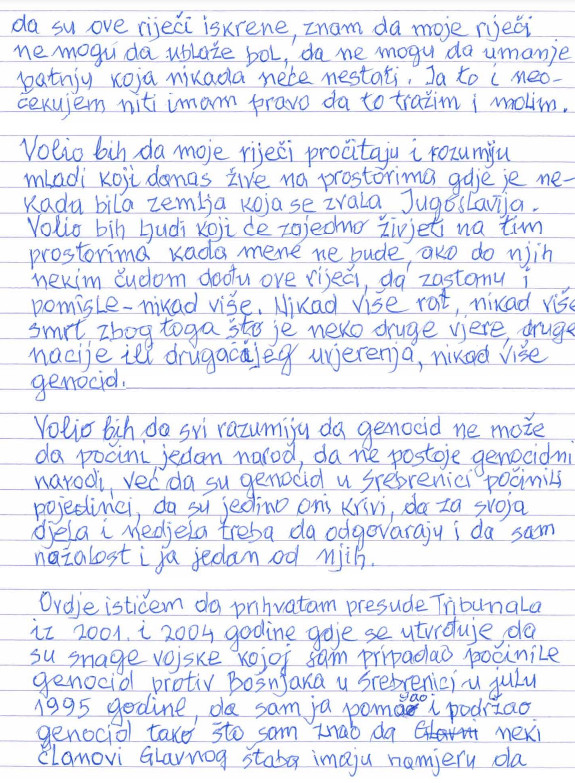 da su ove riječi iskrene, znam da moje riječi
ne mogu da ublaže bol, da ne mogu da umanje
patnju koja nikada neće nestati. Ja to i neo-
čekujem niti imam pravo da to tražim i molim.
Volio bih da moje riječi pročitaju i rozumiju
mladi koji danas žive na prostorima gdje je ne-
kada bila zemlja koja se zvala Jugoslavija.
Volio bih ljudi koji će zajedno živjeti na tim
prostorima kada mene ne bude, ako do njih
nekim čudom dođu ove riječi, da zastanu i
pomisle-nikad više. Nikad više rat, nikad više
smrt zbog toga što je neko druge vjere, druge
nacije ili drugačijeg uvjerenja, nikad više
genocid.
Volio bih da svi razumiju da genocid ne može
da počini jedan narod, da ne postoje genocidni
narodi, već da su genocid u Srebrenici počinili
pojedinci, da su jedino oni krivi, da za svoja
djela i nedjela treba da odgovaraju i da sam
nažalost i ja jedan od njih.
Ovdje ističem da prihvatam presude Tribunala
iz 2001. i 2004 godine gdje se utvrđuje da
su snage vojske kojoj sam pripadao počinile
genocid protiv Bošnjaka u Srebrenici u julu
1995 godine, da sam ja pomagao i podržao
genocid tako što sam znao da Glavni neki
članovi Glavnog štaba imaju namjeru da